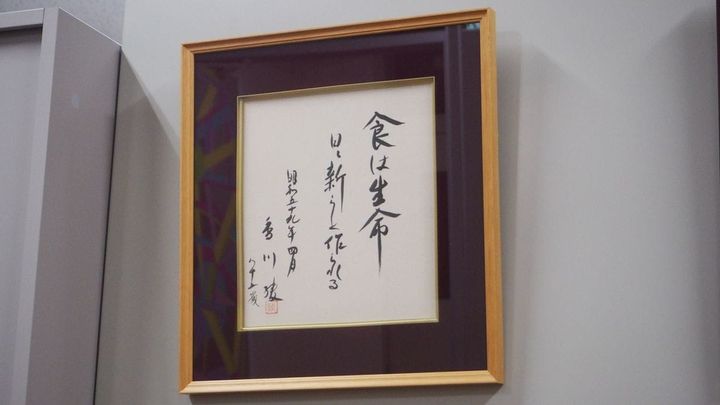 食は生命
日々新らしく作れる
昭和五十九年四月
香川綾
八十五歳